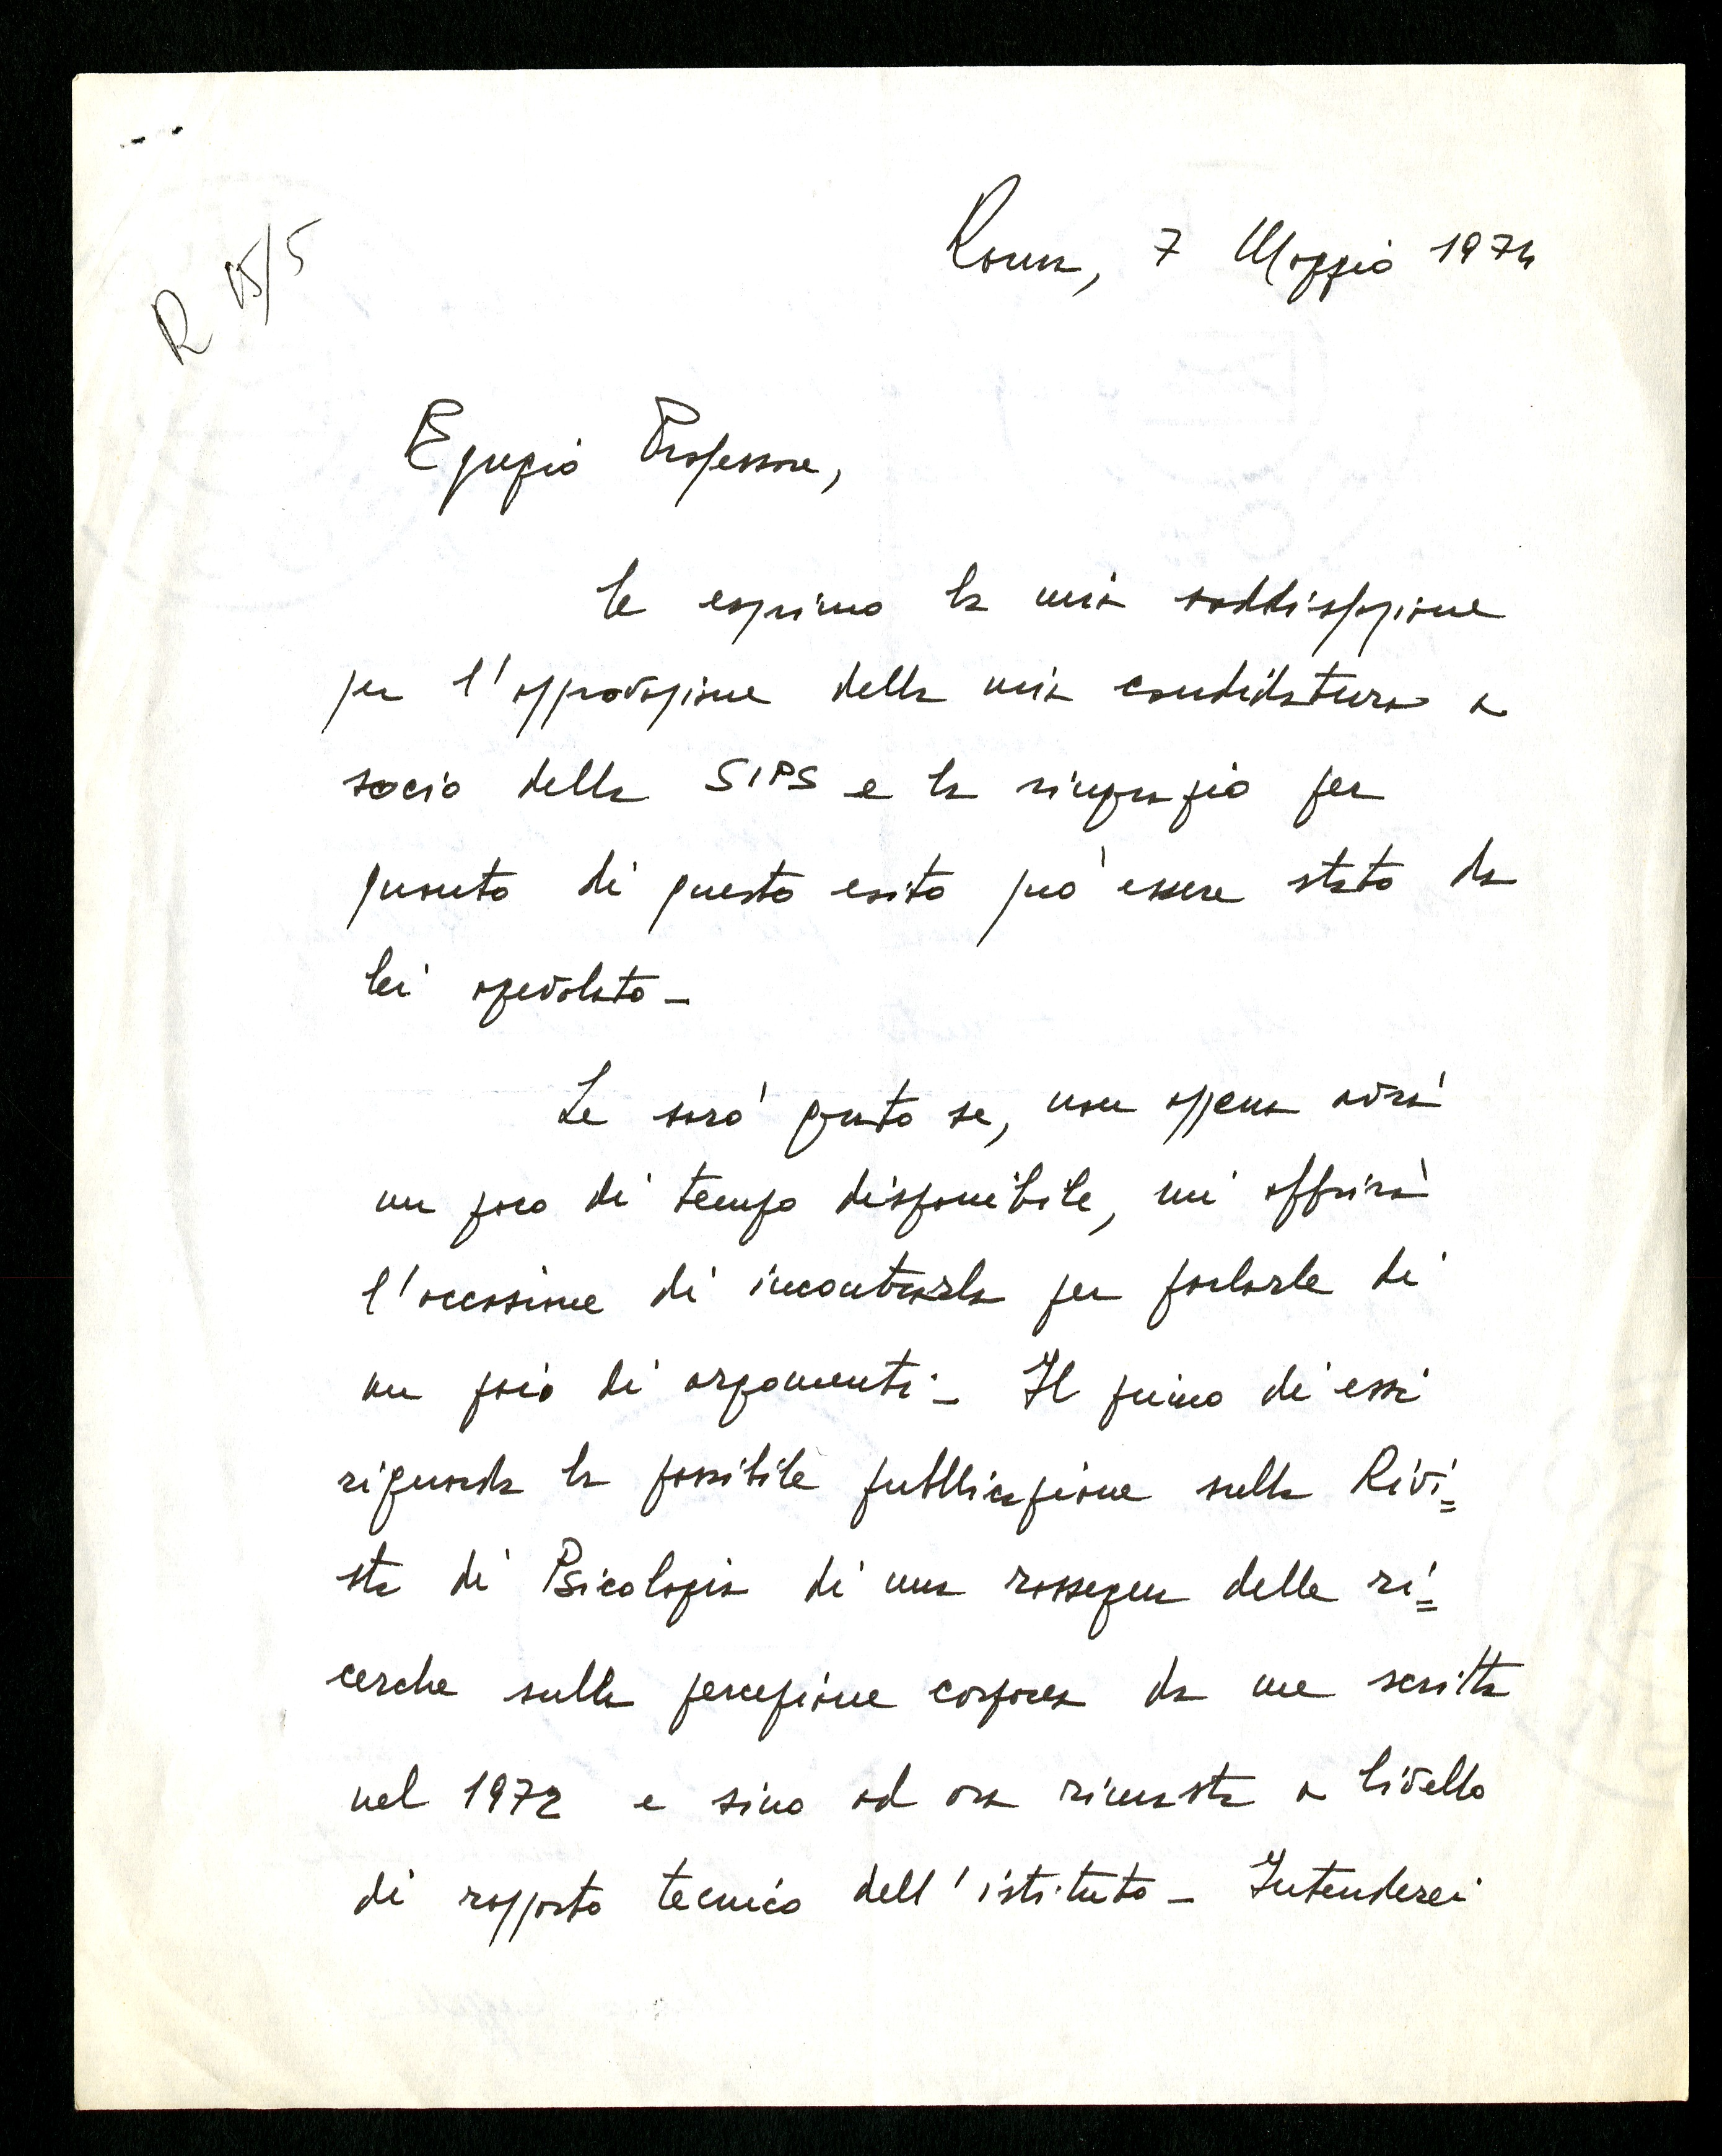 R 15/5
Roma, 7 Maggio 1974
Egregio Professore,
Le esprimo la mia soddisfazione
per l'approvazione della mia candidatura a
socio della SIPS e la ringrazio per
quanto di questo esito può essere stato da
lei agevolato -
Le sarò grato se, non appena avrà
un poco di tempo disponibile, mi offrirà
l'occasione di incontrarla per parlarle di
un paio di argomenti - Il primo di essi
riguarda la possibile pubblicazione sulla Rivi=
sta di Psicologia di una rassegna delle ri=
cerche sulla percezione corporea da me scritta
nel 1972 e sino ad ora rimasta a livello
di rapporto tecnico dell'istituto - Intenderei